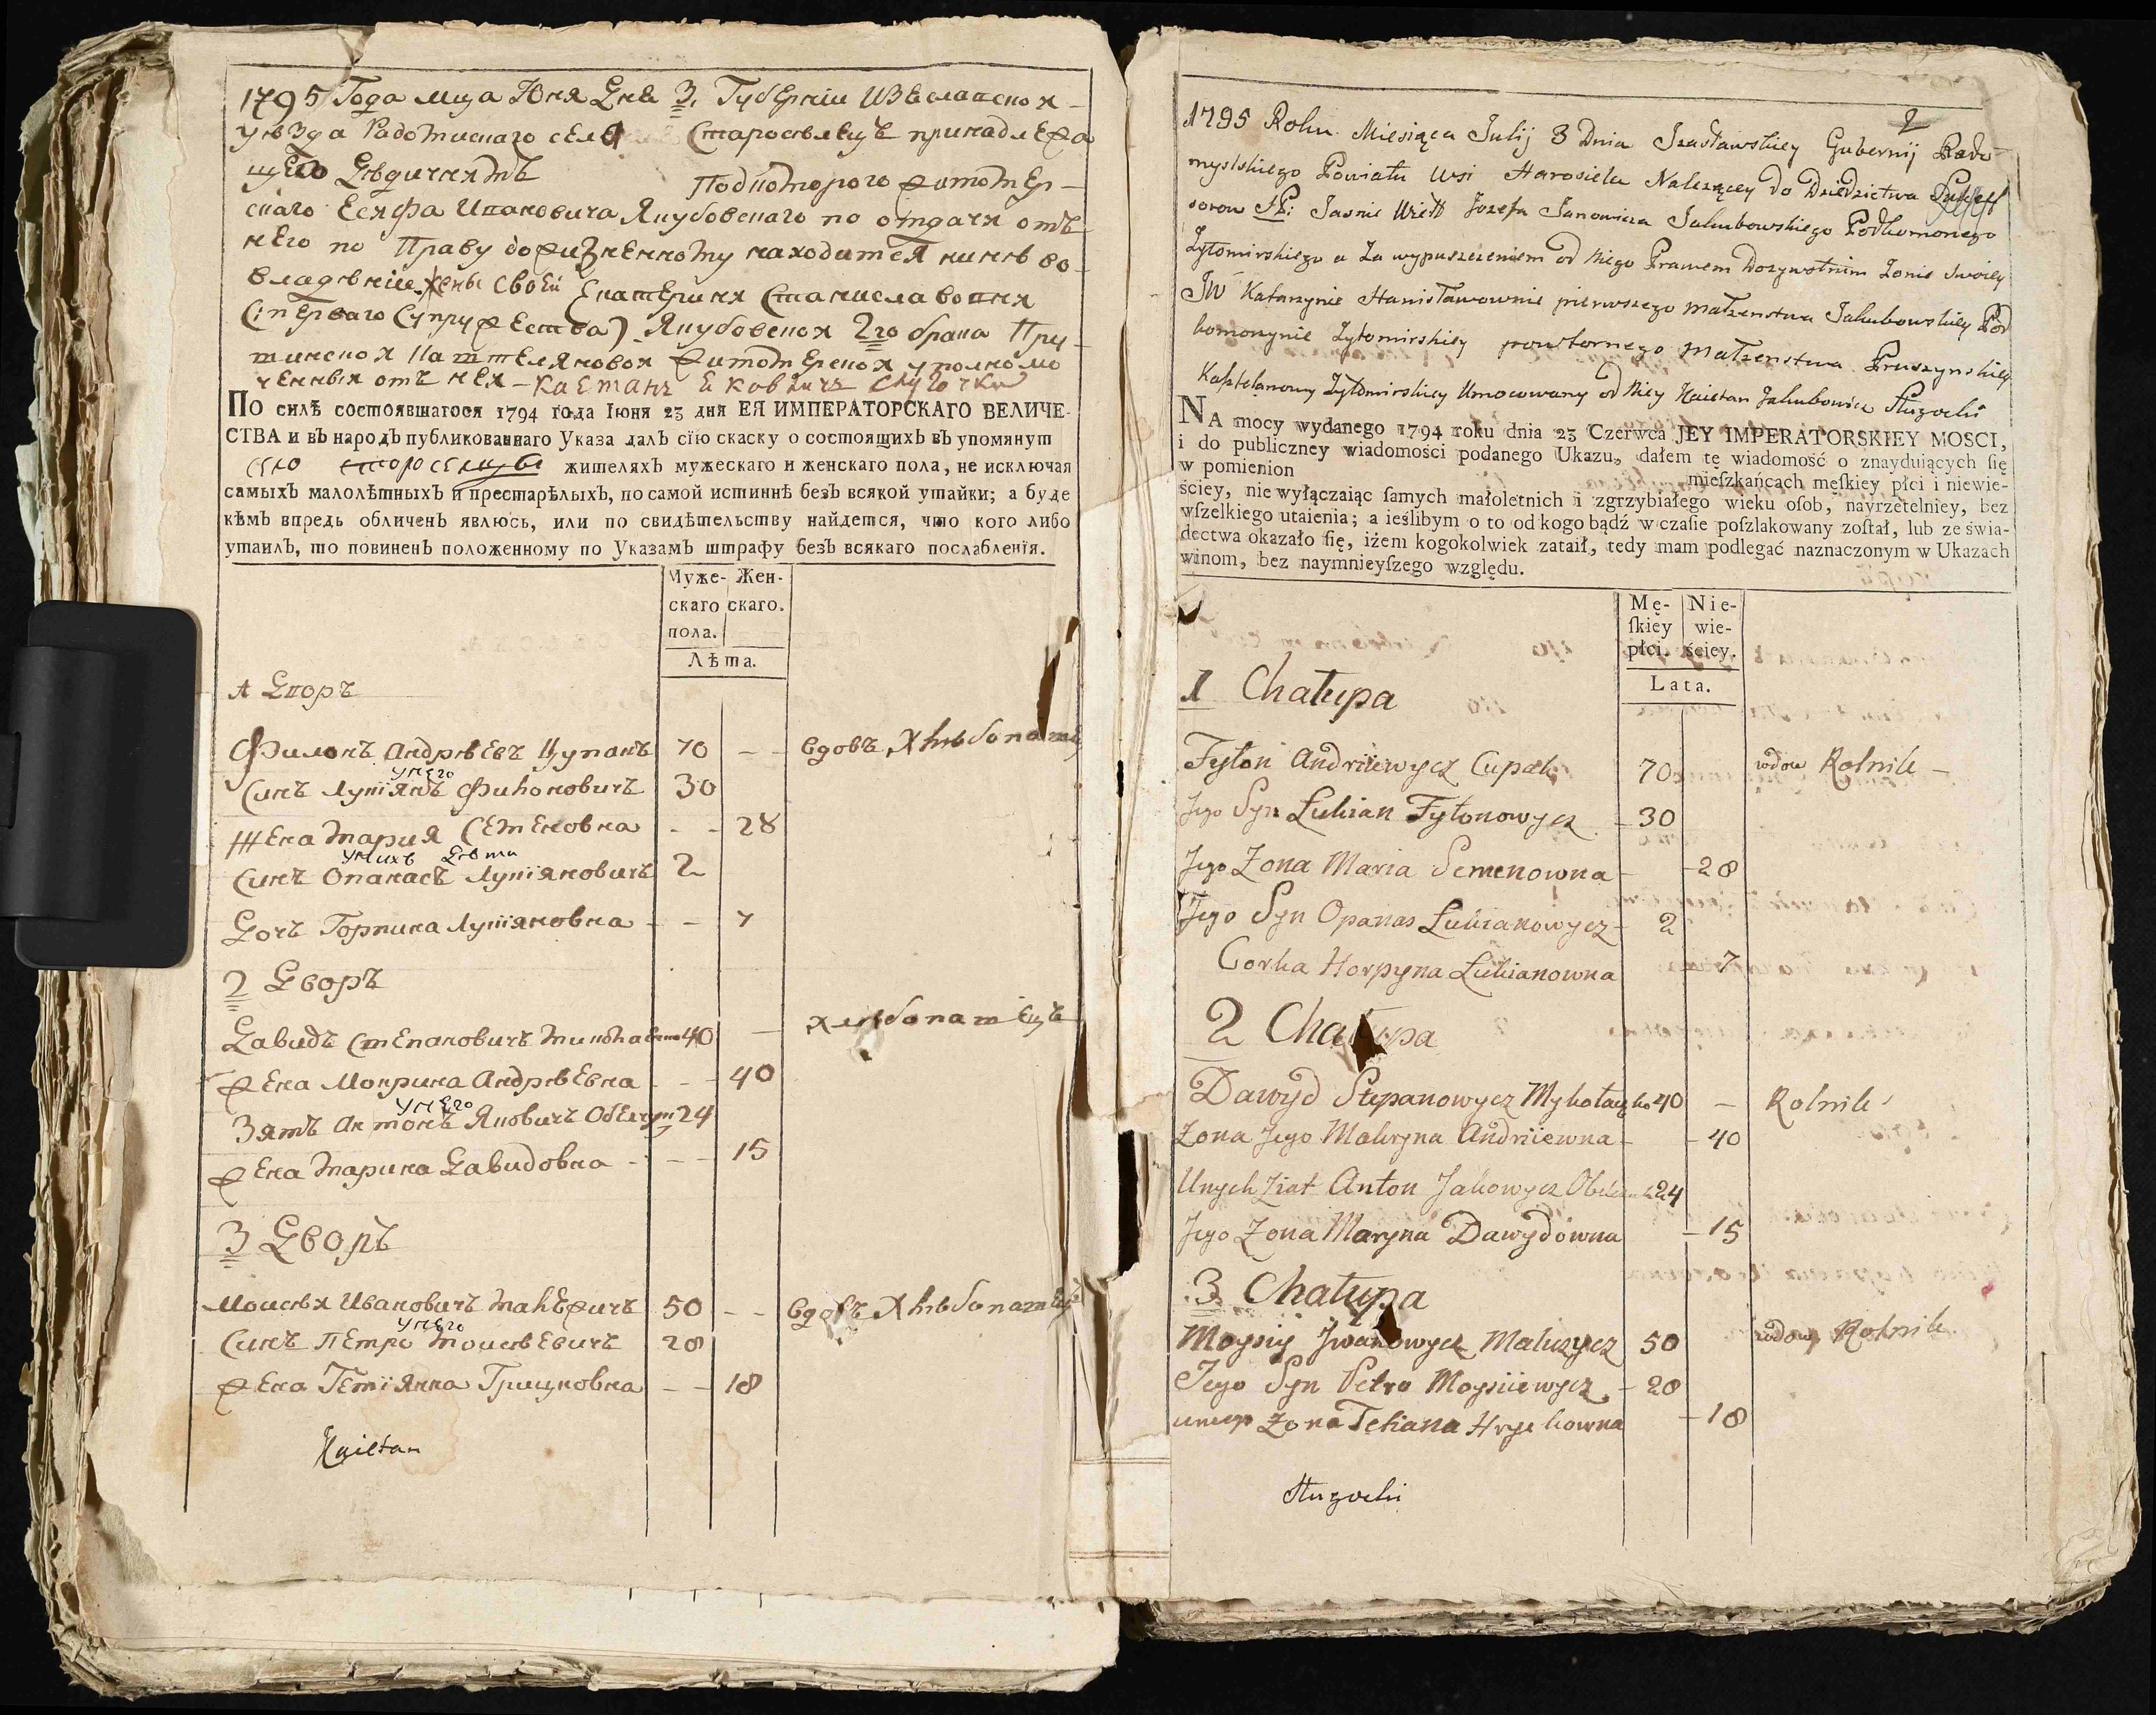 1795 Года мца Юня Дня 3, Губернiи Изяславской
уезда Радомыского села Староселець принадлежа
щего
Подкоморого житомер-
скаго Есифа Ивановича Якубовскаго по отдачи отъ
него по Праву дожизненному находится нинѣ во
владѣнiи жены своей Екатерини Станиславовни
(: первого Супружества) Якубовской 2го брака Пру-
шинской Каштеляновой житомерской уполномо
ченный отъ ней - Каетанъ
ПО силѣ состоявшагося 1794 года Iюня 23 дня ЕЯ ИМПЕРАТОРСКАГО ВЕЛИЧЕ-
СТВА и въ народъ публикованнаго Указа далъ сiю скаску о состоящихъ въ упомянут
жителяхъ мужескаго и женскаго пола, не исключая
самыхъ малолѣтныхъ и престарѣлыхъ, по самой истиннѣ безъ всякой утайки; а буде
кѣмъ впредь обличенъ явлюсь, или по свидѣтельству найдется, что кого либо
утаилъ, то повиненъ положенному по Указамъ штрафу безъ всякаго послабленiя.
Муже- Жен-
скаго скаго.
пола.
Лѣта.
1 Дворъ
Филонъ Андрѣевъ Цупакъ 70 - - вдовъ, Хлѣбопашец
у него
Синъ Лукiянъ Филоновичъ 30
Жена Мария Семеновна - - 28
у нихъ Дѣти
Синъ Опанасъ Лукiяновичъ 2
Дочъ Горпина Лукiяновна - - 7
2 Дворъ
Давидъ Степановичъ 40 - хлѣбопашецъ
жена Мокрина Андрѣевна - - 40
у него
Зять Антонъ Яковичъ 24
жена Марина Давидовна - - - 15
3 Дворъ
Моисѣй Ивановичъ 50 - - вдовъ Хлѣбопашецъ
у него
Синъ Петро Моисѣевичъ 28
жена Тетiянна Грицковна - - 18
Kaietan
2
1795 Roku Miesiąca Julij 3 Dnia Izasławskiey Gubernij Rado-
mysłskiego Powiatu Wsi Starosielec Należącey do Dziedzictwa
Jasnie Józefa Janowicza Jakubowskiego Podkomorzego
Żytomirskiego a Za wypuszczeniem od Niego Prawem Dożywotnim Żonie Swoiey
JW Katarzynie Stanisławownie pierwszego Małżenstwa Jakubowskiey Pod
komorzynie Żytomirskiey powtornego Małżenstwa Pruszynskiey
Kasztelanowy Żytomirskiey Umocowany od Niey Kaietan Jakubowicz
NA mocy wydanego 1794 roku dnia 23 Czerwca JEY IMPERATORSKIEY MOSCI,
i do publiczney wiadomości podanego Ukazu, dałem tę wiadomość o znayduiących ſię
w pomienion mieſzkańcach męſkiey płci i niewie-
ściey, nie wyłączaiąc ſamych małoletnich i zgrzybiałego wieku oſob, nayrzetelniey, bez
wſzelkiego utaienia; a ieślibym o to od kogo bądź w czaſie poſzlakowany zoſtał, lub ze świa-
dectwa okazało ſię, iżem kogokolwiek zataił, tedy mam podlegać naznaczonym w Ukazach
winom, bez naymnieyſzego względu.
Mę- Nie-
ſkiey wie-
płci. ściey.
Lata.
1 Chałupa
Fyłon Andriiewycz Cupak 70 wdow Rolnik -
Jego Syn Łukian Fyłonowycz - 30
Jego Zona Maria Semenowna - - 28
Jego Syn Opanas Łukianowycz - 2
Corka Horpyna Łukianowna 7
2 Chałupa
Dawyd Stepanowycz 40 - Rolnik
Zona Jego Mokryna Andriiewna - - 40
Unych Ziat Anton Jakowycz 24
Jego Zona Maryna Dawydowna - 15
3 Chałupa
Moysiy Jwanowycz 50 wdowy Rolnik
Jego Syn Petro Moysiiewycz - 28
Zona Tetiana Hryckowna - 18